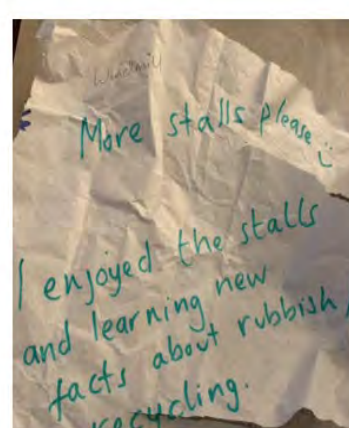 Windmill
More stalls please :)
I enjoyed the stalls
and learning new
facts about rubbish,
recycling.